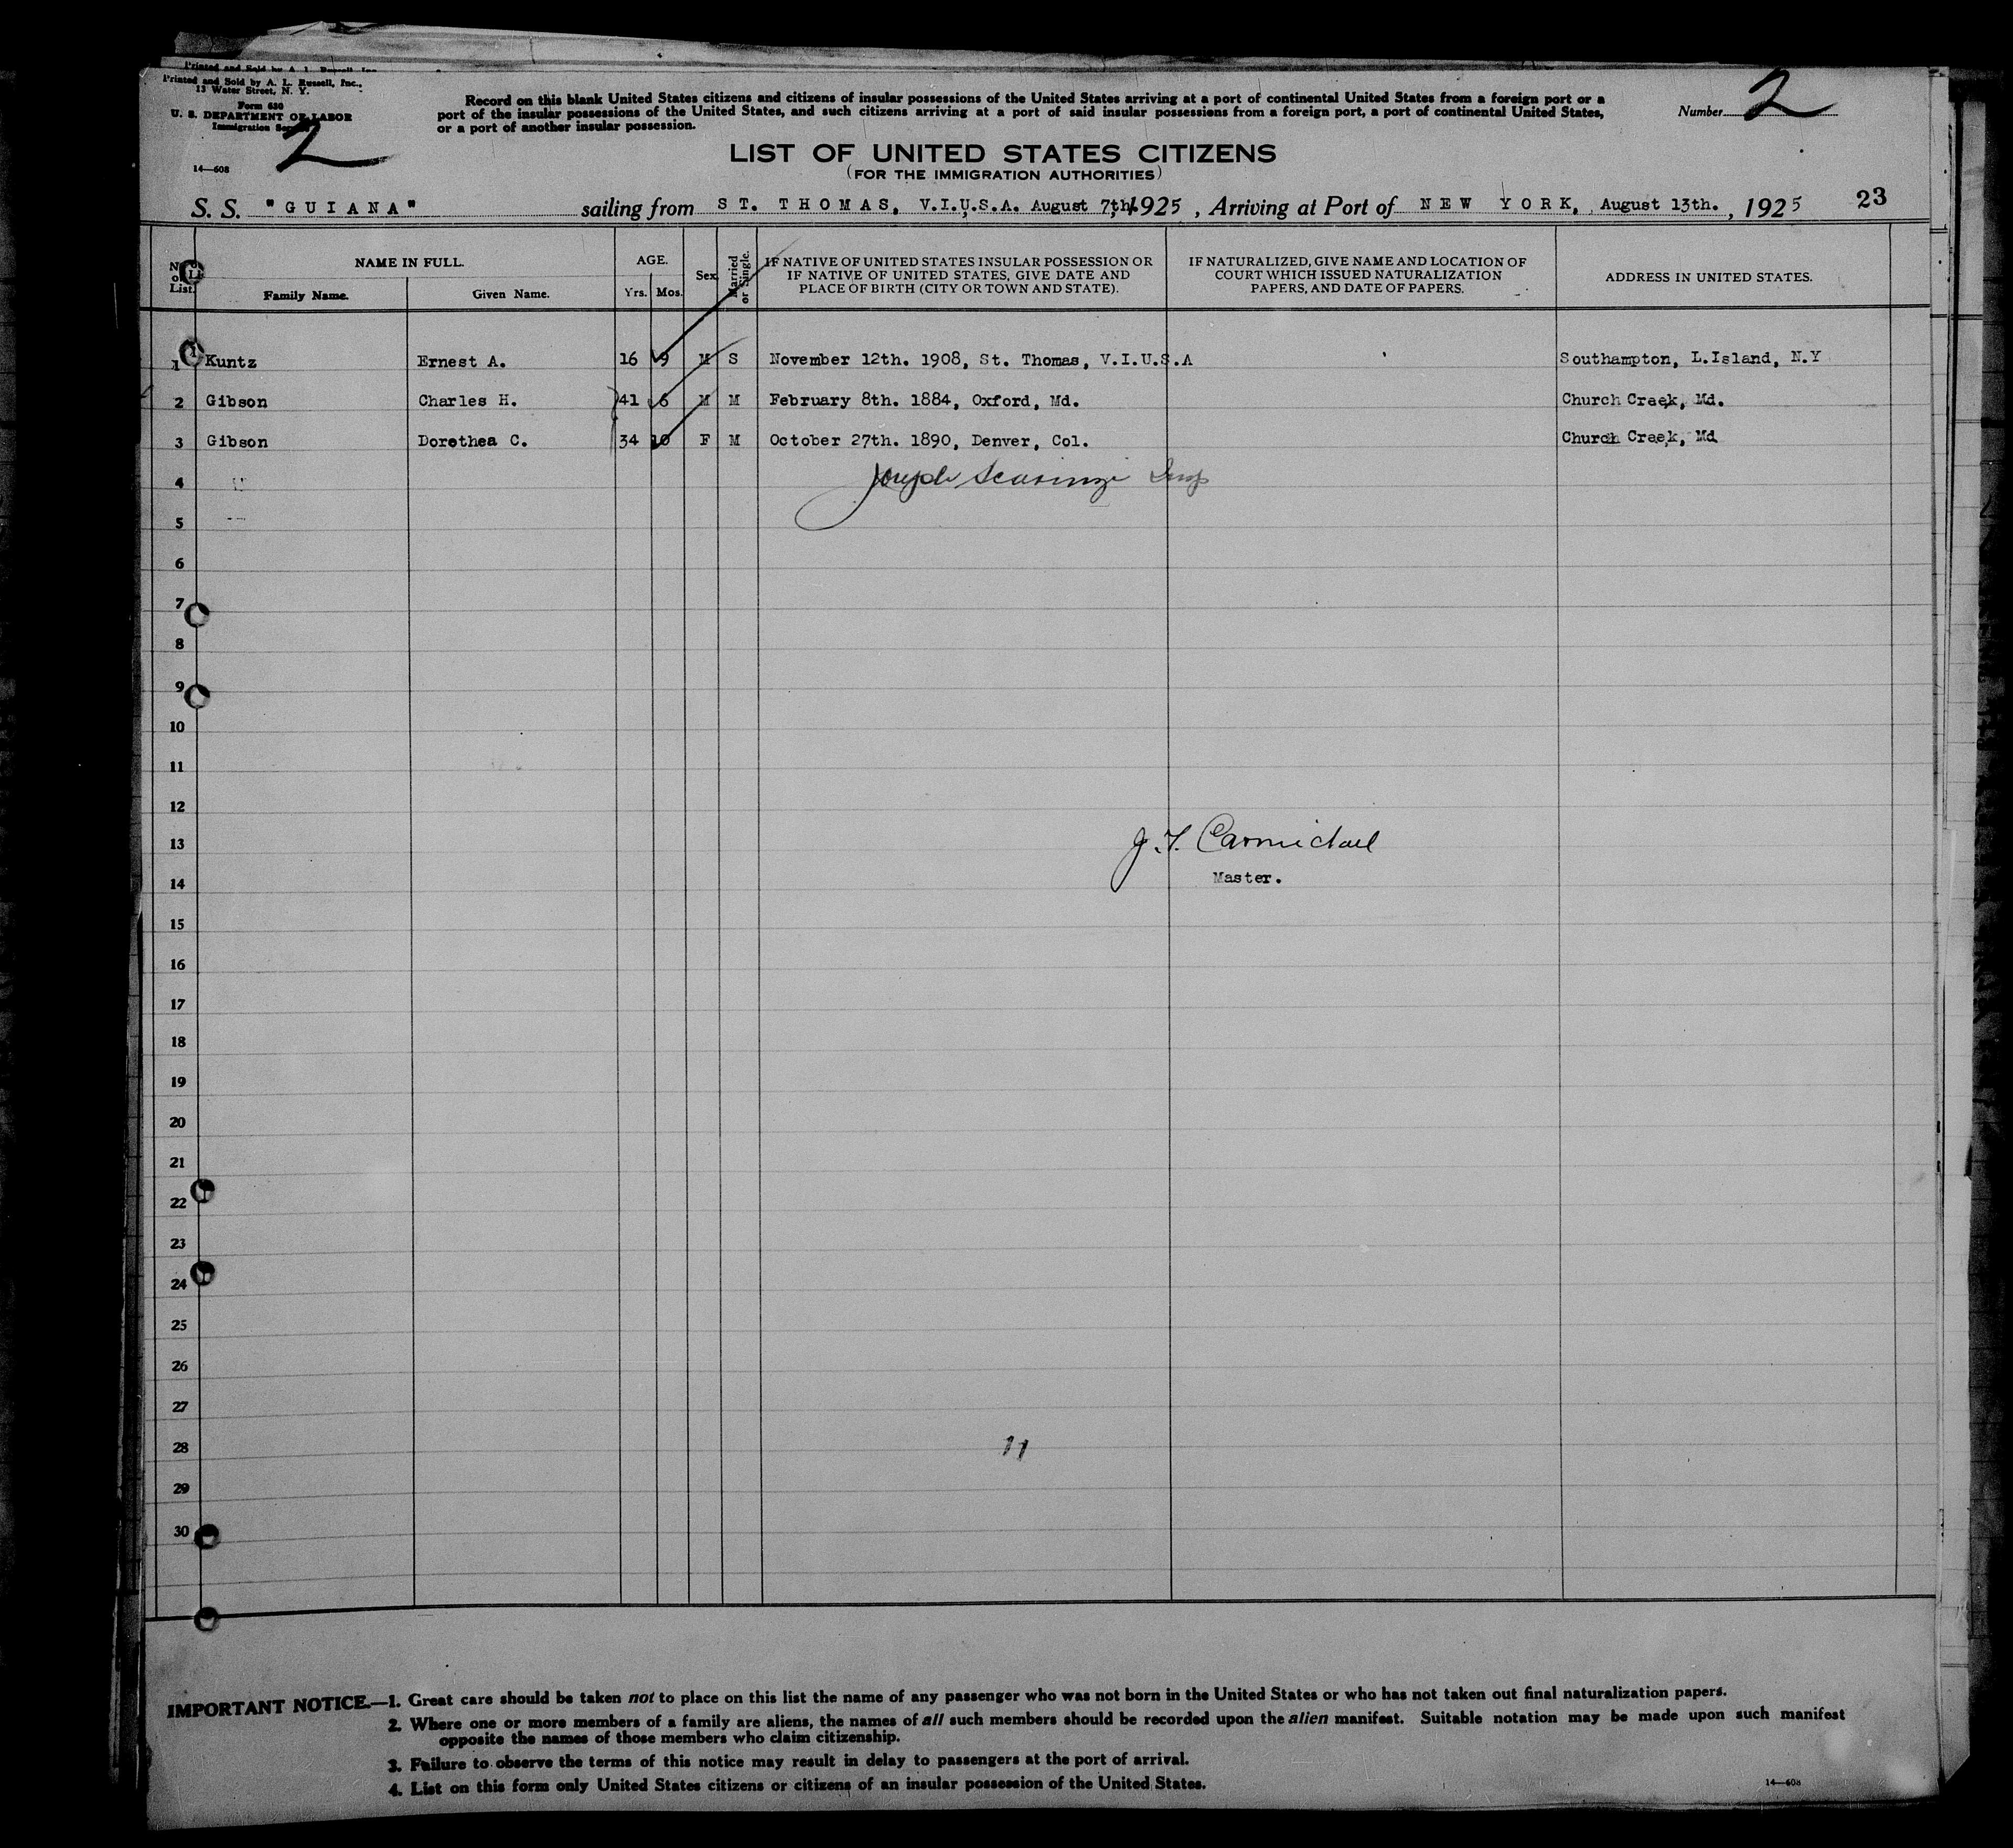 Printed and Sold by A. L. Russell, Inc.,
Printed and Sold by A. L. Russell, Inc.,
13 Water Street, N. Y.
Form 630
U. S. DEPARTMENT OF LABOR
Immigration Service
2
14—608
Record on this blank United States citizens and citizens of insular possessions of the United States arriving at a port of continental United States from a foreign port or a
port of the insular possessions of the United States, and such citizens arriving at a port of said insular possessions from a foreign port, a port of continental United States,
or a port of another insular possession.
Number 2
LIST OF UNITED STATES CITIZENS
(FOR THE IMMIGRATION AUTHORITIES)
S. S. "GUIANA" sailing from ST. THOMAS, V.I.U.S.A. August 7th, 1925, Arriving at Port of NEW YORK, August 13th., 1925 23
No. on List.
NAME IN FULL.
Family Name.
Given Name.
AGE.
Yrs. Mos.
Sex
Married or Single.
IF NATIVE OF UNITED STATES INSULAR POSSESSION OR
IF NATIVE OF UNITED STATES, GIVE DATE AND
PLACE OF BIRTH (CITY OR TOWN AND STATE).
IF NATURALIZED, GIVE NAME AND LOCATION OF
COURT WHICH ISSUED NATURALIZATION
PAPERS, AND DATE OF PAPERS.
ADDRESS IN UNITED STATES.
1 Kuntz Ernest A. 16 9 M S November 12th. 1908, St. Thomas, V.I.U.S.A Southampton, L.Island, N.Y
2 Gibson Charles H. 41 6 M M February 8th. 1884, Oxford, Md. Church Creek, Md.
3 Gibson Dorothea C. 34 10 F M October 27th. 1890, Denver, Col. Church Creek, Md
4 Joseph Insp
5
6
7
8
9
10
11
12
13 J. F. Carmichael
14 Master.
15
16
17
18
19
20
21
22
23
24
25
26
27
28 11
29
30
IMPORTANT NOTICE.—1. Great care should be taken not to place on this list the name of any passenger who was not born in the United States or who has not taken out final naturalization papers.
2. Where one or more members of a family are aliens, the names of all such members should be recorded upon the alien manifest. Suitable notation may be made upon such manifest
opposite the names of those members who claim citizenship.
3. Failure to observe the terms of this notice may result in delay to passengers at the port of arrival.
4. List on this form only United States citizens or citizens of an insular possession of the United States.
14—608